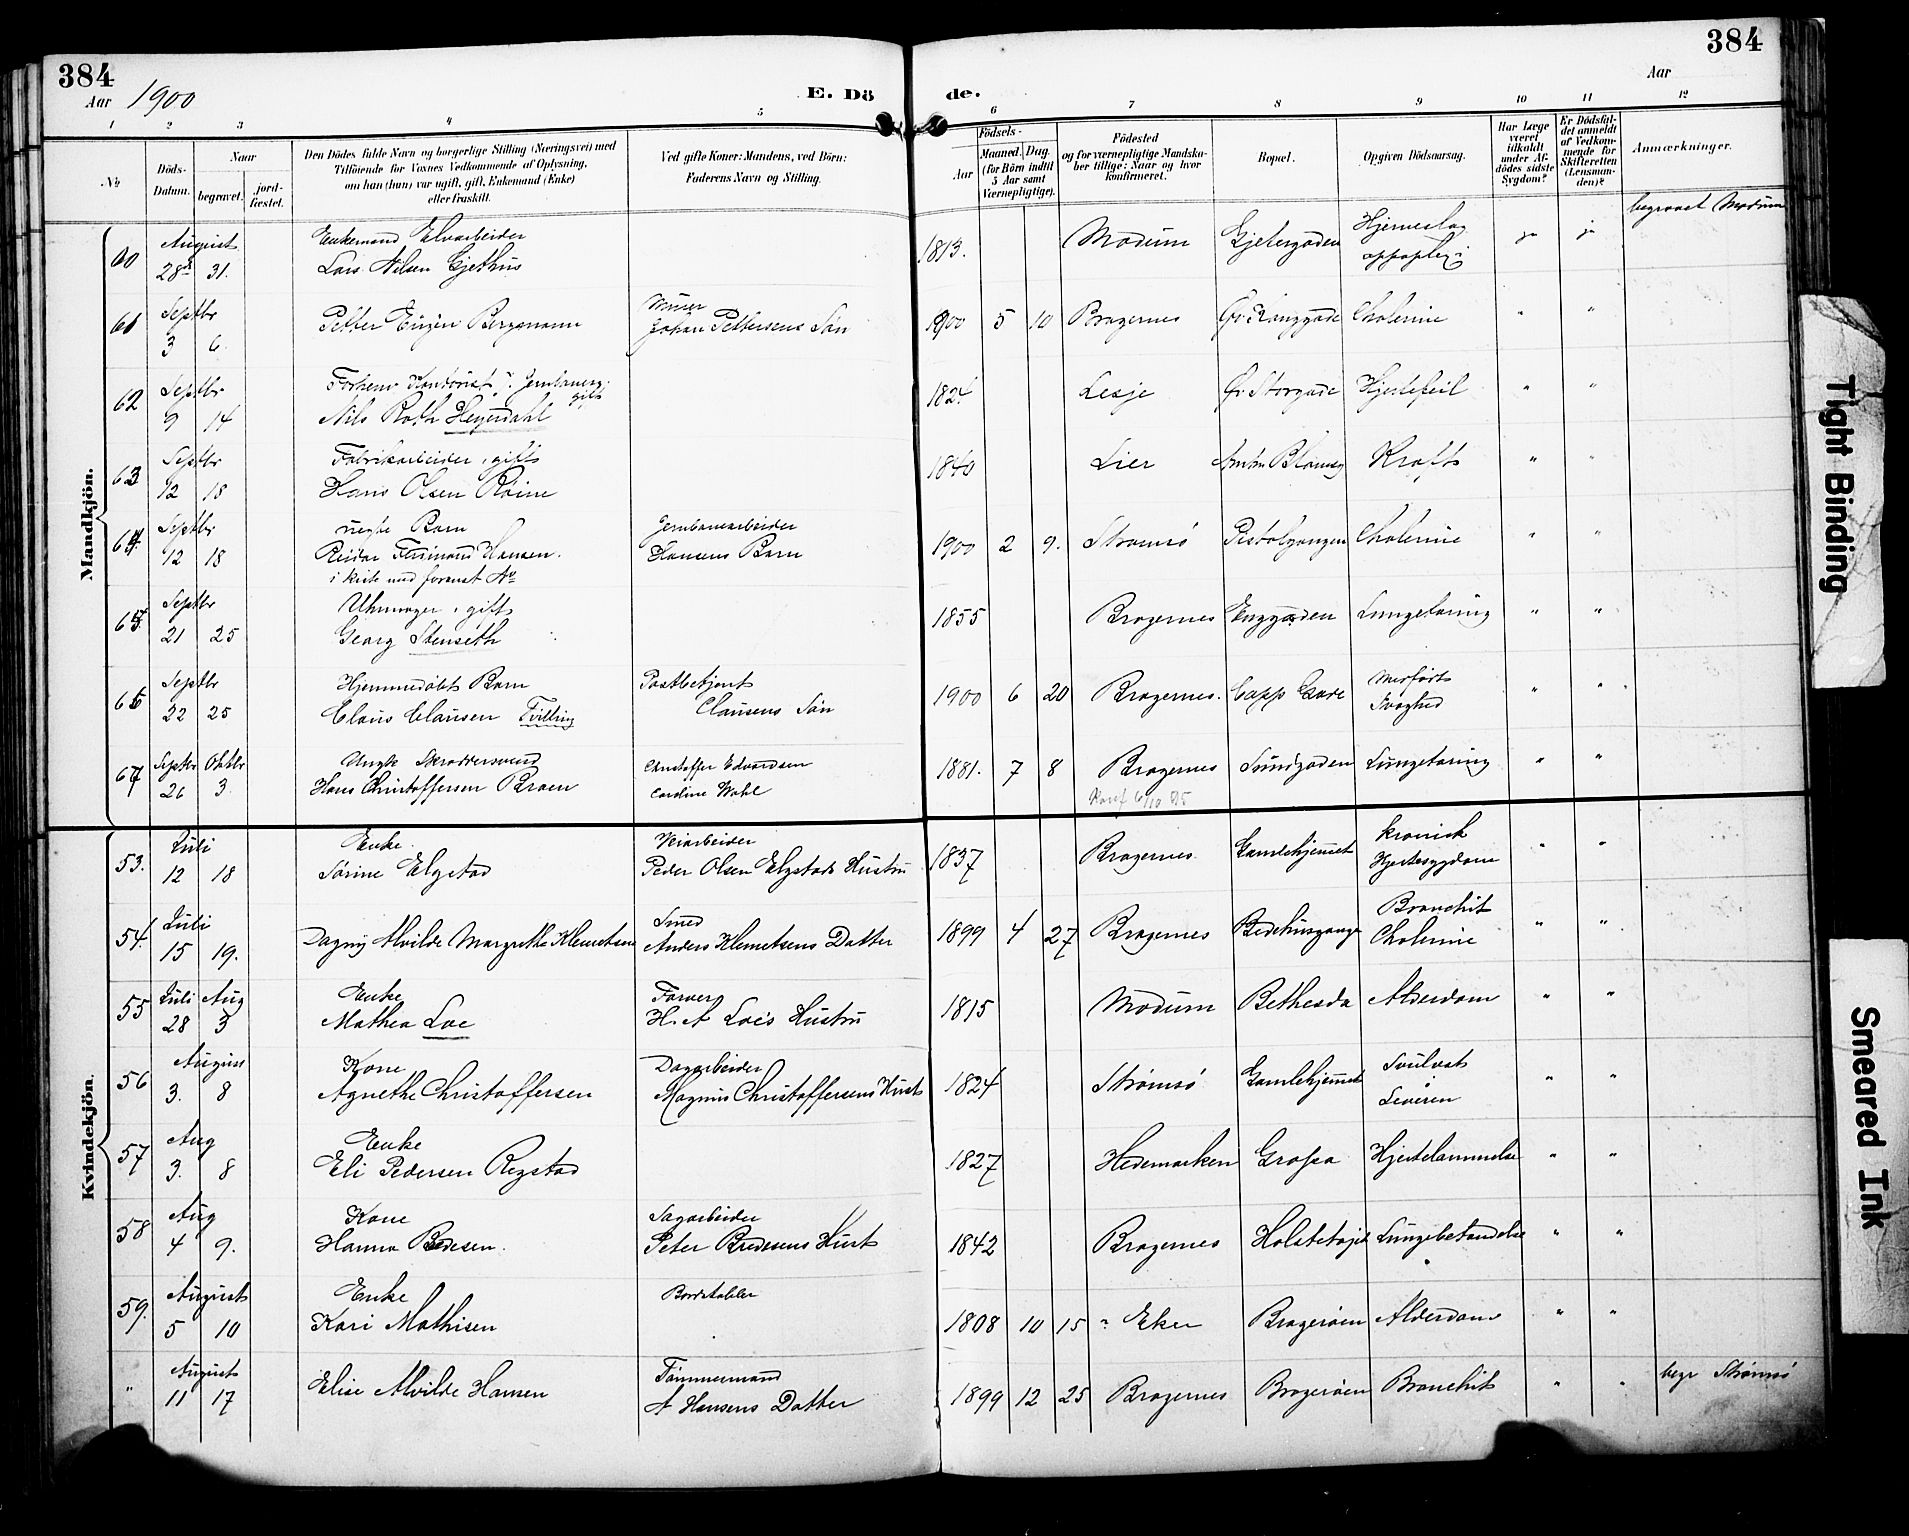 384
Aar 1900
E. Dö
de.
Aar
384
1 2 3 4 5 6 7 8 9 10 11 12
No
Döds-Datum.
Naar
begravet.
jord-fæstet.
Den Dödes fulde Navn og borgerlige Stilling (Næringsvei) med
Tilföiende for Voxnes Vedkommende af Oplysning,
om han (hun) var ugift, gift, Enkemand (Enke)
eller fraskilt.
Ved gifte Koner: Mandens, ved Börn:
Faderens Navn og Stilling.
Födsels-
Aar Maaned. Dag.
(for Börn indtil
5 Aar samt
Værnepligtige).
Födested
og for værnepligtige Mandska-
ber tillige: Naar og hvor
konfirmeret.
Bopæl.
Opgiven Dödsaarsag.
Har Læge
været
tilkaldt
under Af-
dödes sidste
Sygdom?
Er Dödsfal-
det anmeldt
af Vedkom-
mende for
Skifteretten
(Lensman-
den)?
Anmærkninger.
Mandkjön.
60 August 28 31. Enkemand Elvarbeider
Lars Nilsen Gjethus 1813. Modum Gjetergaden Hjerneslag ja ja begravet Modum
61 Septbr 3 6. Petter Eugen Bergmann Johan Pettersens Søn 1900 5 10 Bragernes Cholerine " "
62 Septbr 9 14 Nils Roth Heyerdahl gift 182 Lesje Øv Storgade Hjertefeil " "
63 Septbr 12 18 Fabrikarbeider, gift
Hans Olsen 1840 Lier Kræft " "
64 Septbr 12 18 uægte Barn
Reidar Ferdinand Hansen.
i kiste med foranst No
Jernbanearbeider
Hansens Barn 1900 2 9. Strømsø Pistolgangen Cholerine " "
65 Septbr 21 25 Uhrmager, gift
Georg Stenseth 1855 Bragernes Enggaden Lungetæring " "
66 Septbr 22 25 Hjemmedøbt Barn
Claus Clausen Tvilling
Postbetjent
Clausens Søn 1900 6 20 Bragernes. Capp Gade Medfødt
Svaghed " "
67 Septbr 26 Oktbr 3. Ungk Skræddersvend
Hans Christoffersen Braen
Christoffer Edvardsen
Cardine Wahl 1881. 7 8 Bragernes
Konf 6/10 95
Sundgaden Lungetæring " "
Kvindekjön.
53. Juli 12 18 Enke.
Sørine Elgstad
Veiarbeider
Peder Olsen Elgstads Hustru 1837 Bragernes. Gamlehjemmet kronisk
Hjertesygdom " "
54. Juli 15 19. Dagny Alvilde Margrethe Klemetsen
Smed
Anders Klemetsens Datter 1899 4 27 Bragernes Bedehusgangen Bronchit
Cholerine " "
55 Juli 28 Aug 3 Enke
Mathea Loe
Farver
H. A Loes Hustru 1815 Modum Bethesda Alderdom " "
56 August 3. 8 Kone
Agnethe Christoffersen
Dagarbeider
Magnus Christoffersens Hust 1824 Strømsø Gamlehjemmet Svulst
Leveren " "
57 Aug 3. 8 Enke
Eli Pedersen Rygstad 1827 Hedemarken Grosra Hjertelammelse " "
58 Aug 4 9. Kone
Hanna Bredesen.
Sagarbeider
Peter Bredesens Hust 1842 Bragernes Lungebetændelse " "
59. August 5 10 Enke
Kari Mathisen
Bordstabler 1808 10 15 Eker Bragerøen Alderdom " "
" August 11 17 Elise Alvilde Hansen
Tømmermand
A Hansens Datter 1899 12 25 Bragernes Bragerøen Bronchit " " begr Strømsø
Tight Binding
Smeared Ink